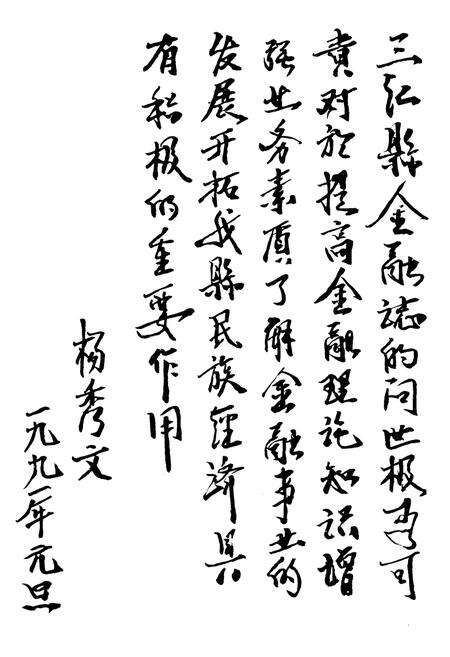 三江縣金融誌的问世极为可
貴对於提高金融理论知识增
强业务素质了解金融事业的
发展开拓我縣民族經济具
有积极的重要作用
杨秀文
一九九一年元旦